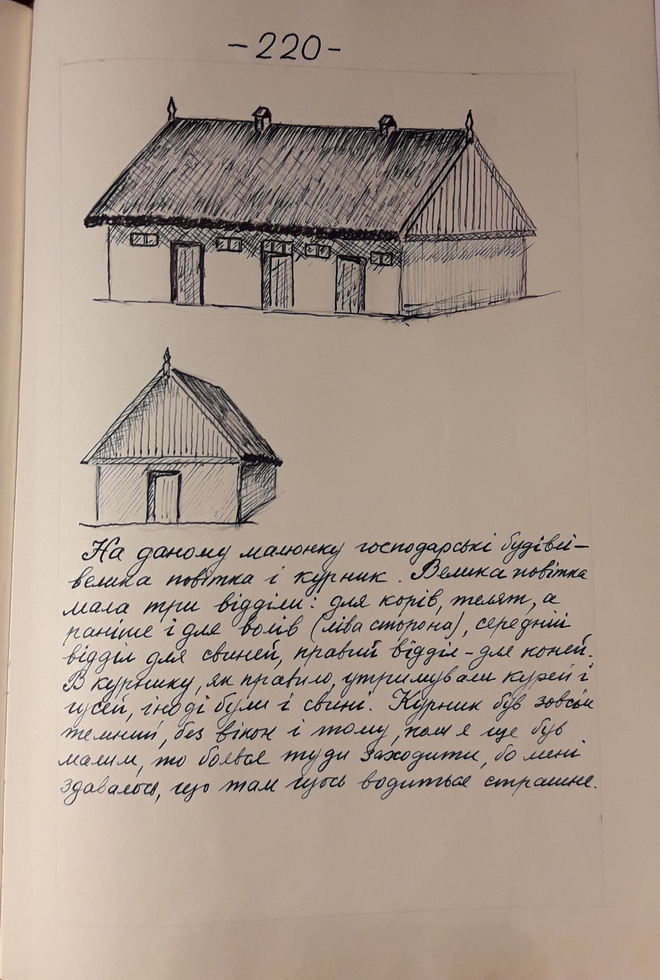 -220-
На даному малюнку господарські будівлі-
велика повітка і курник. Велика повітка
мала три відділи: для корів, телят, а
раніше і для волів (ліва сторона), середній
відділ для свиней, правий відділ - для коней.
В курнику, як правило, утримували курей і
гусей, іноді були і свині. Курник був зовсім
темний, без вікон і тому, коли я ще був
малим, то боявся туди заходити, бо мені
здавалось, що там щось водиться страшне.